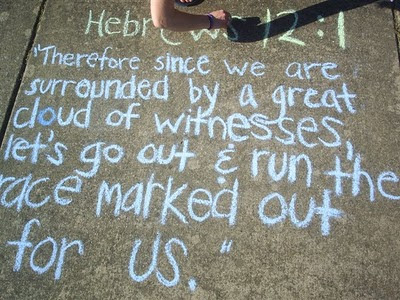 Hebrews 12:1
"Therefore since we are
surrounded by a great
cloud of witnesses,
let's go out & run the
race marked out
for us."